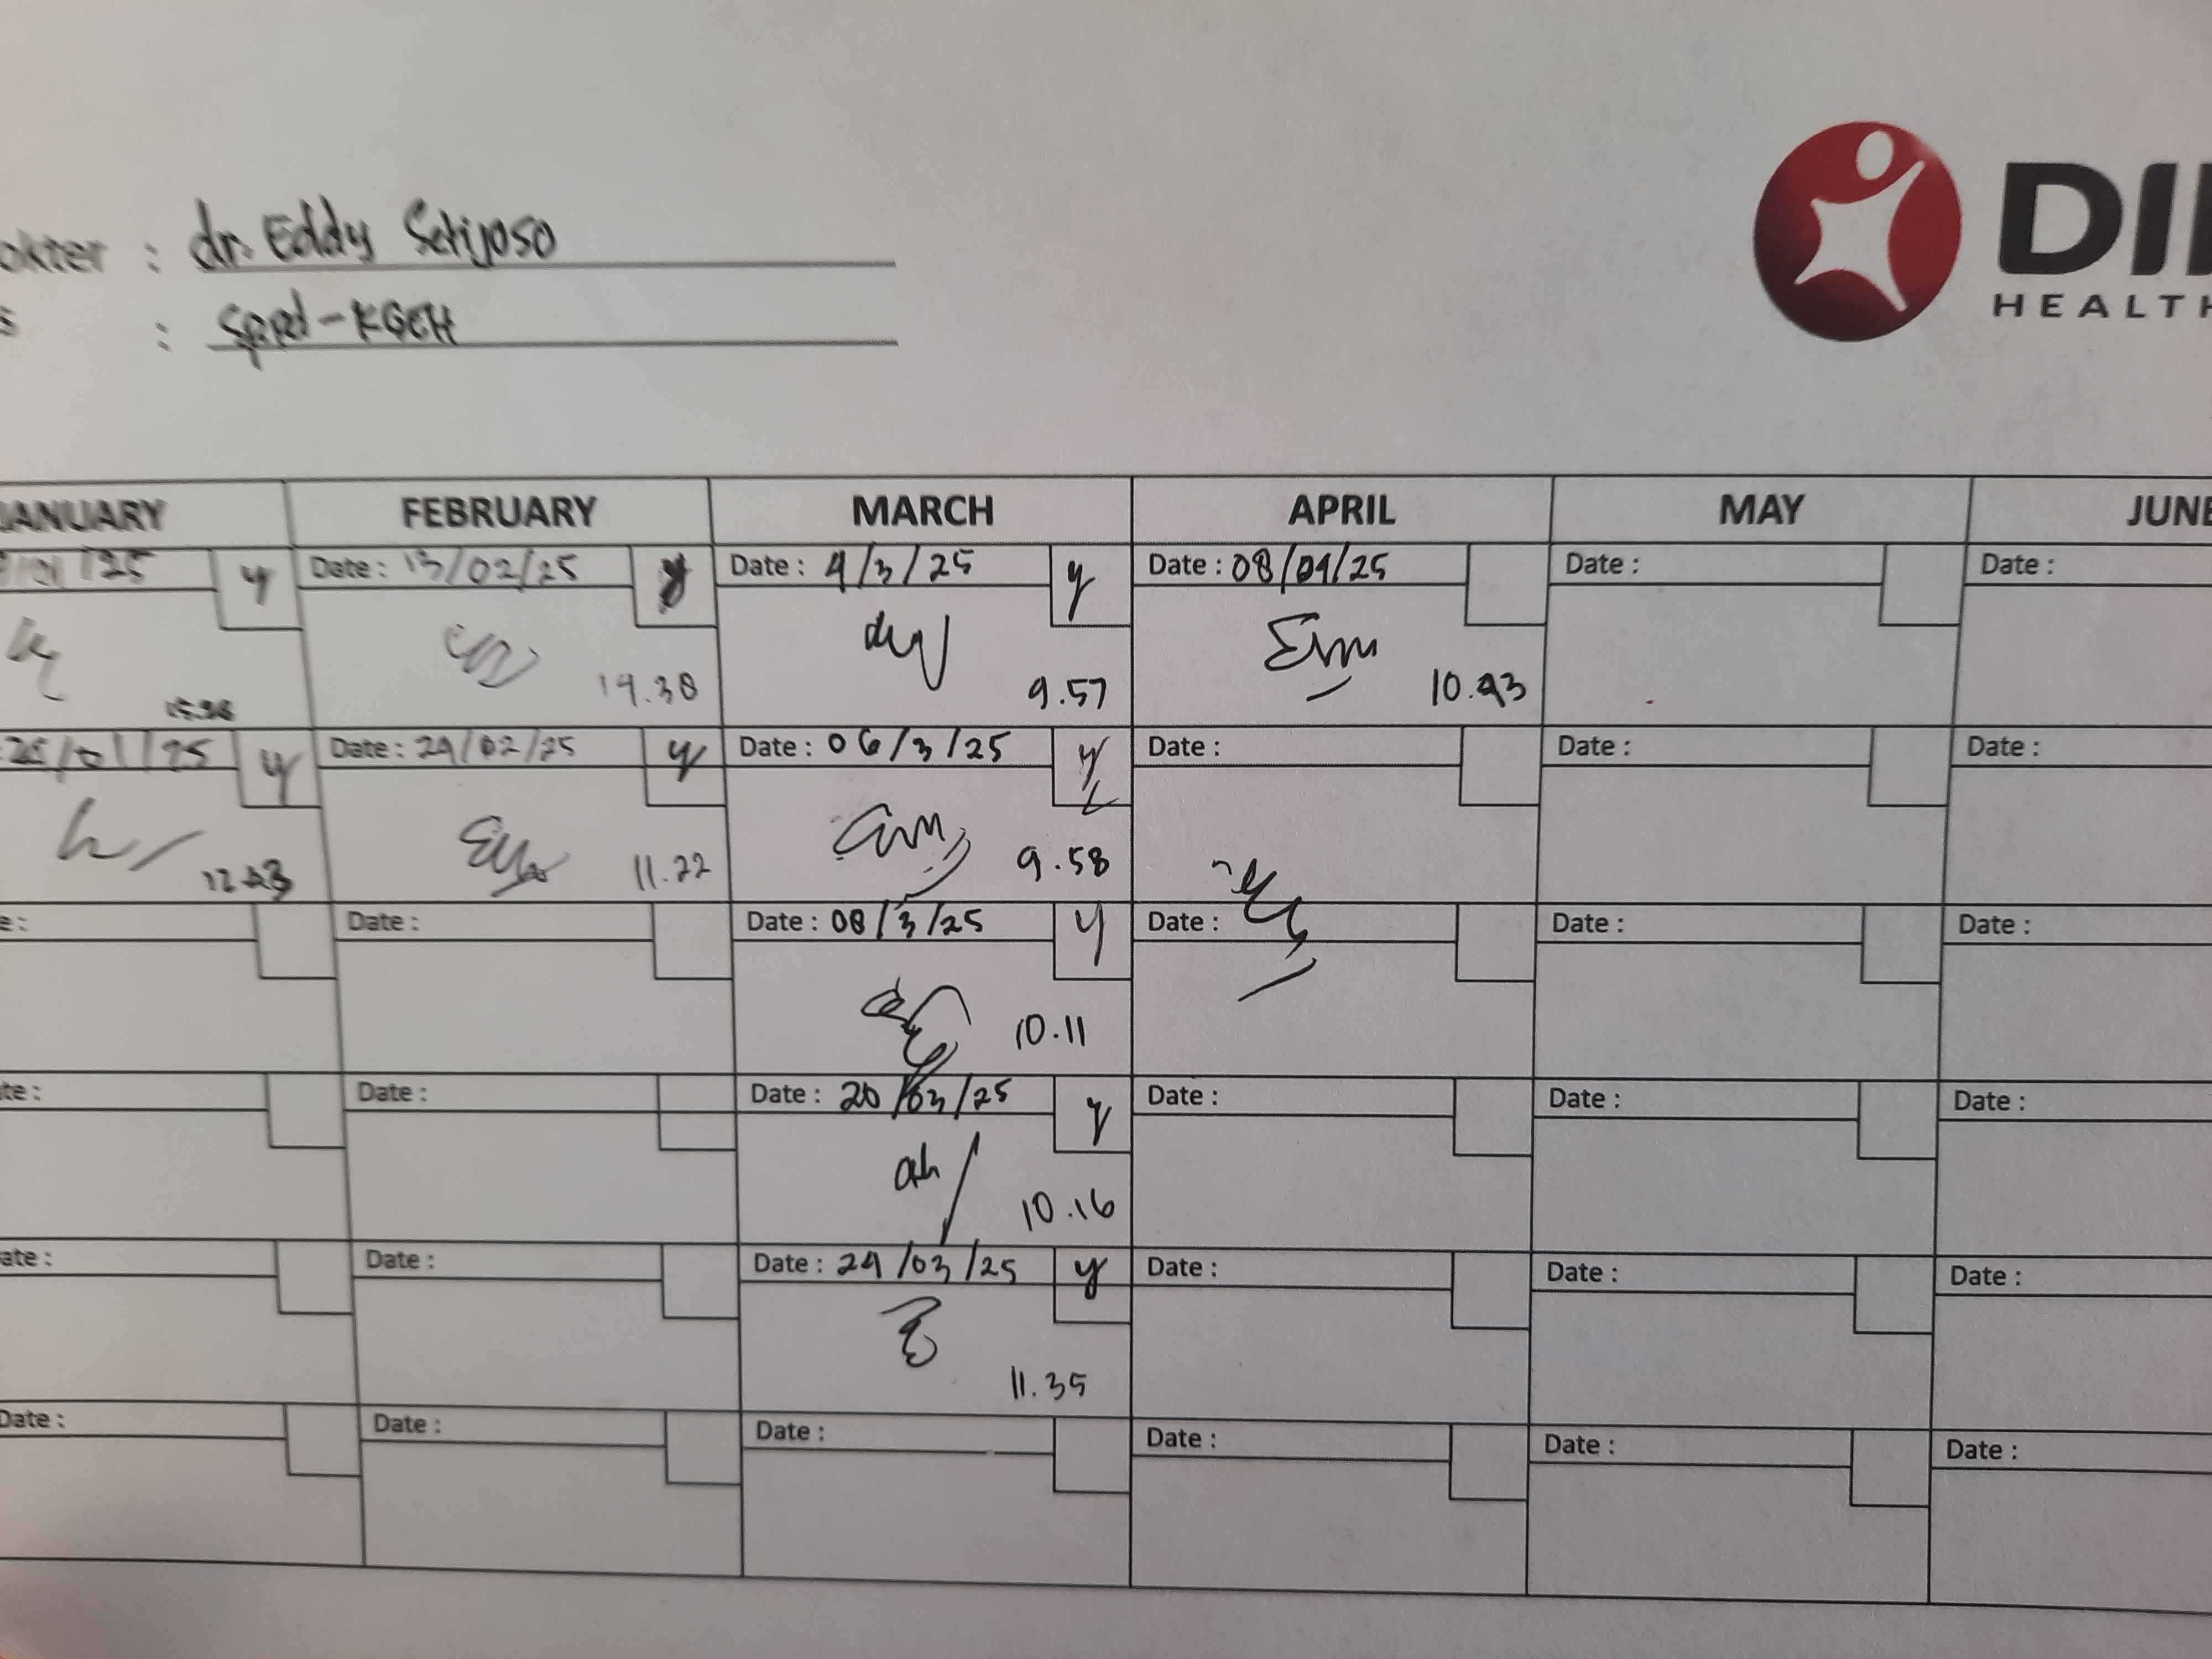 okter : dr. Eddy Setijoso
s : SpPd-KGEH
DI
HEALTH
JANUARY FEBRUARY MARCH APRIL MAY JUNE
/01/25 y Date : 13/02/25 y Date : 4/3/25 y Date : 08/04/25 Date : Date :
14.38 9.57 10.43
25/01/25 y Date : 24/02/25 y Date : 06/3/25 y Date : Date : Date :
11.22 9.58
e : Date : Date : 08/3/25 y Date : Date : Date :
10.11
te : Date : Date : 20/03/25 y Date : Date : Date :
10.16
ate : Date : Date : 24/03/25 y Date : Date : Date :
11.35
Date : Date : Date : Date : Date : Date :